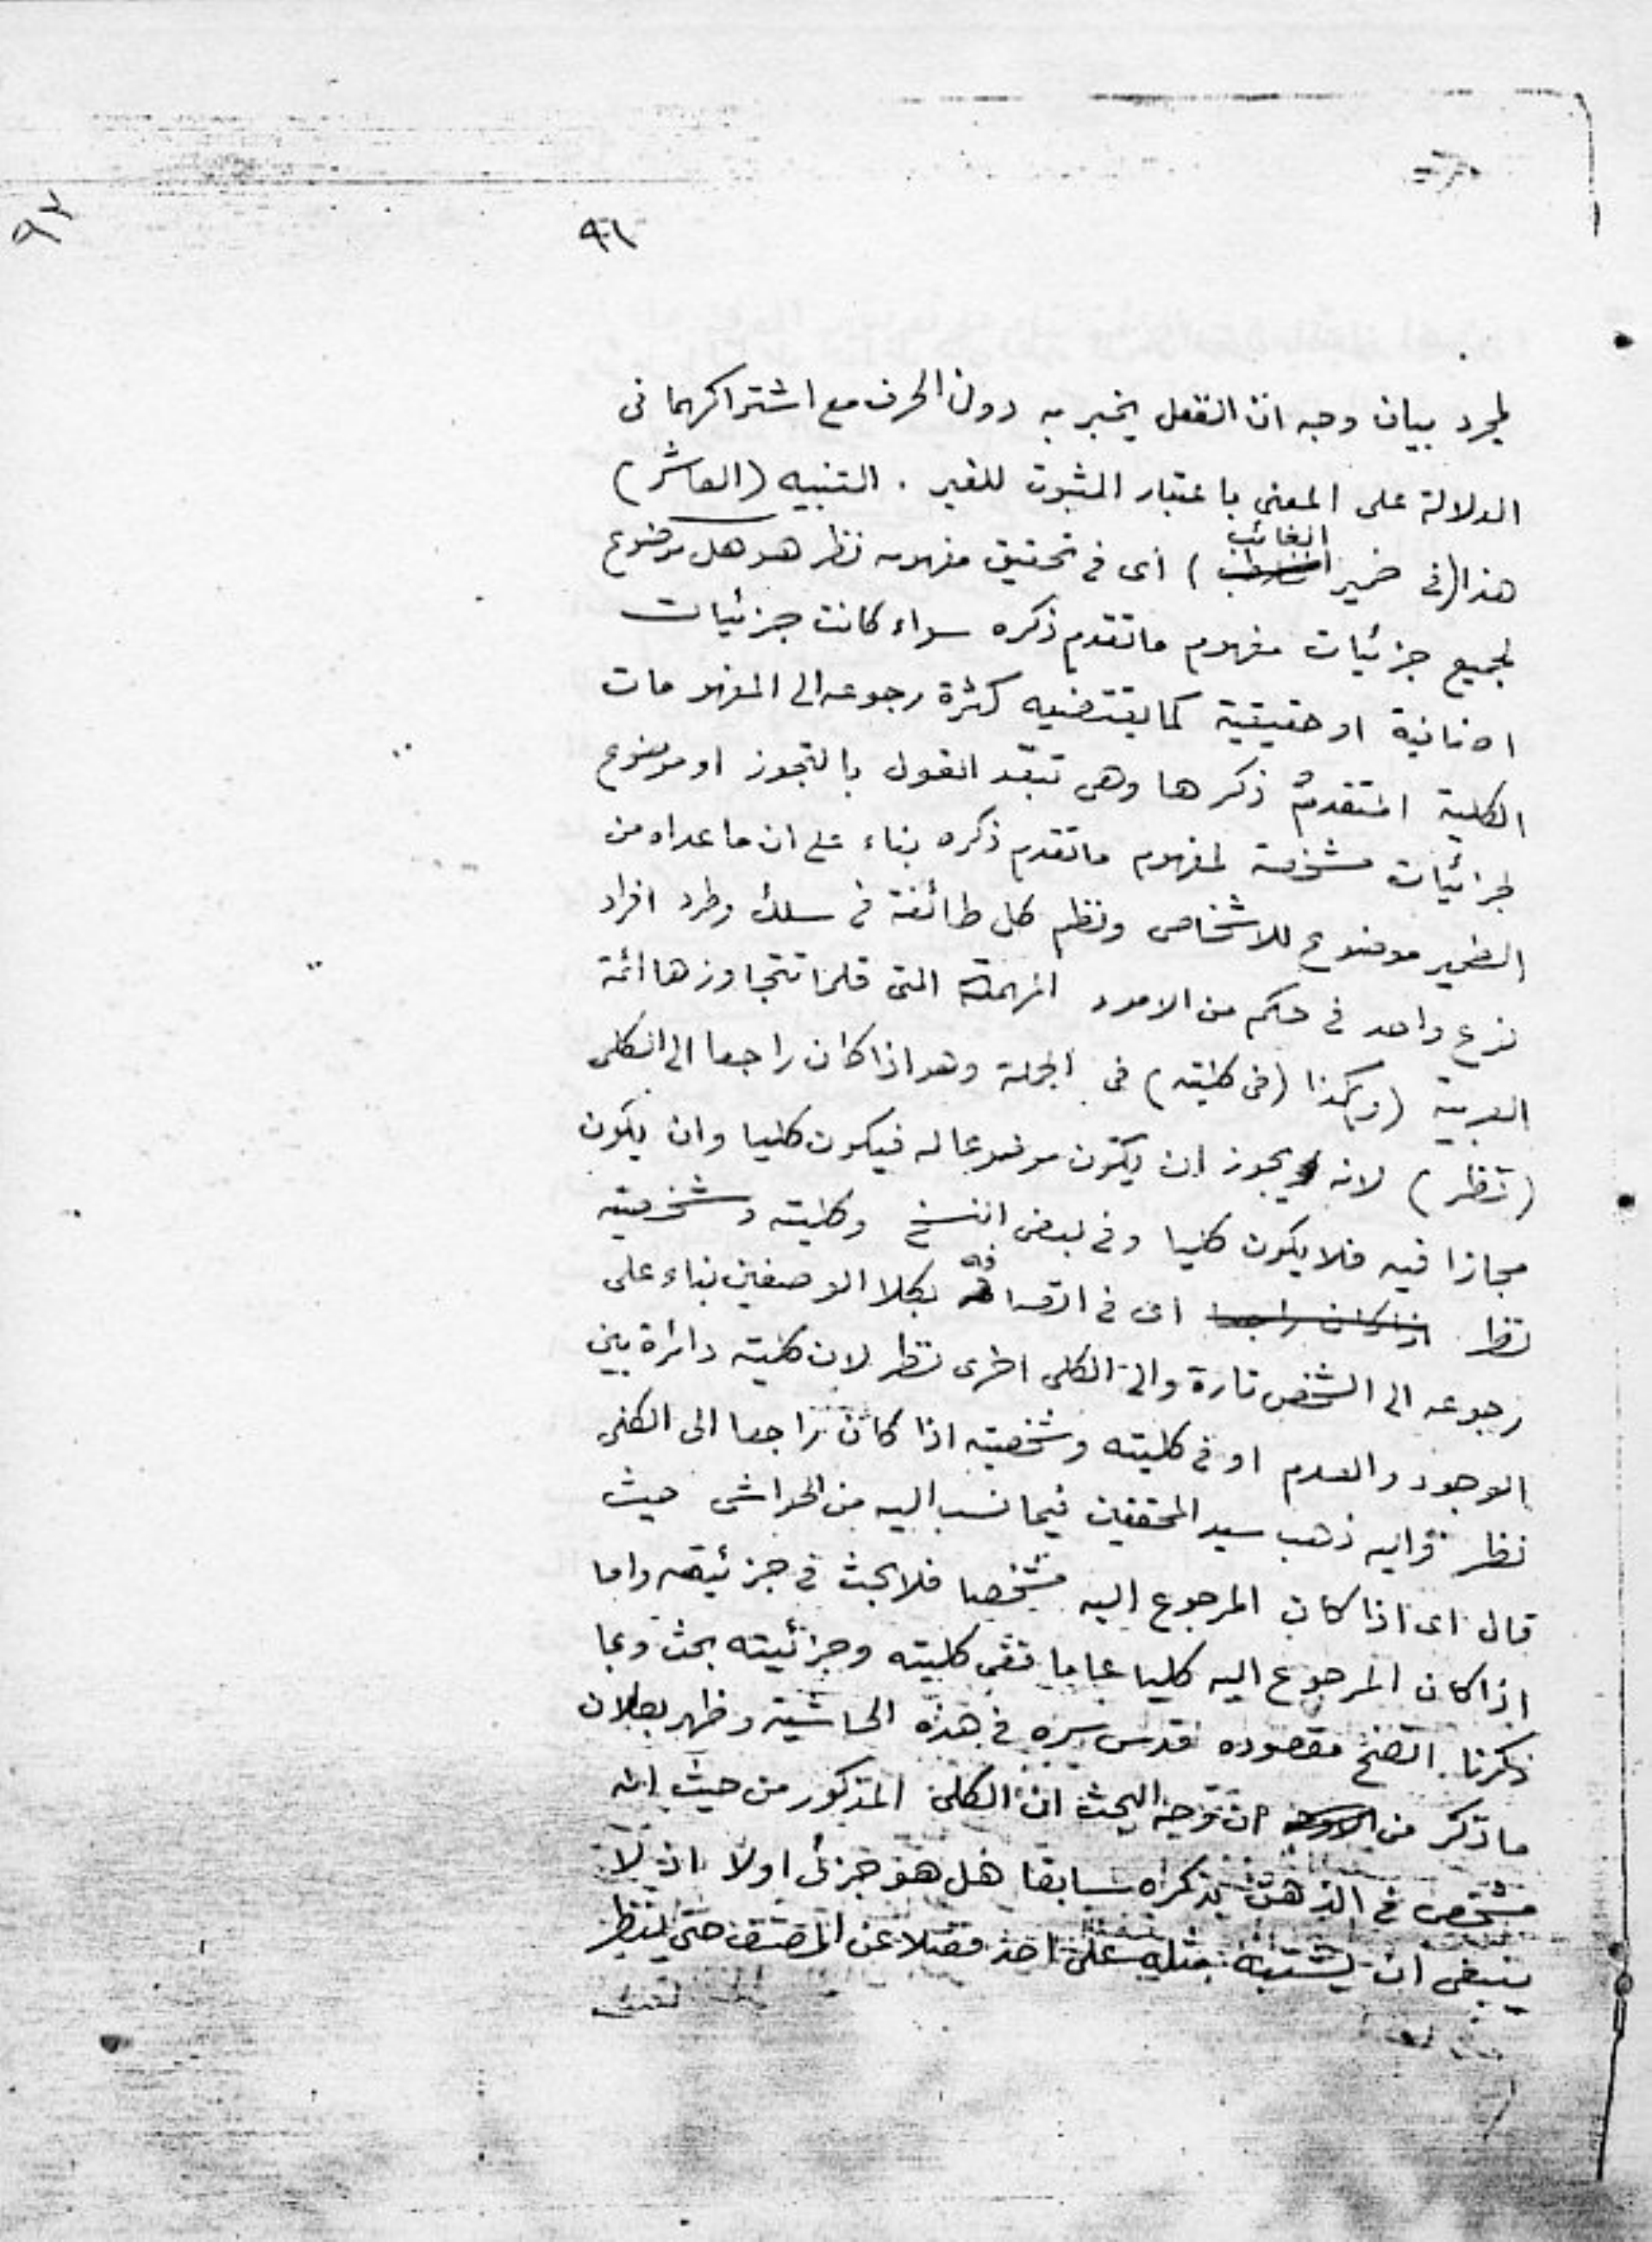 ٩٢
٩١
لمجرد بيان وجه ان الفعل يخبر به دون الحرف مع اشتراكهما فى
الدلالة على المعنى باعتبار الثبوت للغير . التنبيه (العاشر)
هذا (فى ضمير الغائب) اى فى تحقيق مفهومه نظر هو هل موضوع
لجميع جزئيات مفهوم ماتقدم ذكره سواء كانت جزئيات
اضافية او حقيقية كما يقتضيه كثرة رجوعه الى المفهومات
الكلية المتقدمة ذكرها وهى تبعّد القول بالتجوز او موضوع
لجزئيات مشخصة لمفهوم ماتقدم ذكره بناء على ان ماعداه من
الضمير موضوع للاشخاص ونظم كل طائفة فى سلك وطرد افراد
نوع واحد فى حكم من الامور المهمة التى قلما تتجاوزها ائمة
العربية (و) كذا (فى كليته) فى الجملة وهو اذا كان راجعا الى الكلى
(نظر) لانه يجوز ان يكون موضوعا له فيكون كليا وان يكون
مجازا فيه فلا يكون كليا وفى بعض النسخ وكليته وشخصيته
نظر اذا كان راجعا اى فى اتصافه بكلا الوصفين بناء على
رجوعه الى الشخص تارة والى الكلى اخرى نظر لان كليته دائرة بين
الوجود والعدم او فى كليته وشخصيته اذا كان راجعا الى الكلى
نظر واليه ذهب سيد المحققين فيما نسب اليه من الحواشى حيث
قال اى اذا كان المرجوع اليه مشخصا فلا بحث فى جزئيته واما
اذا كان المرجوع اليه كليا عاما ففى كليته وجزئيته بحث وبما
ذكرنا اتضح مقصوده قدس سره فى هذه الحاشية وظهر بطلان
ماذكر من ان توجيه البحث ان الكلى المذكور من حيث انه
مشخص فى الذهن بذكره سابقا هل هو جزئى اولا اذ لا
ينبغى ان يشتبه مثله على احد فضلا عن المصنف حتى ينظر